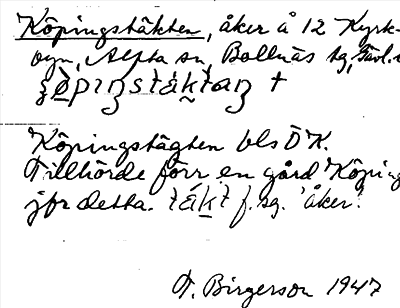 Köpingstäkten, åker å 12 Kyrk-
byn, Alfta sn, Bollnäs tg, Gävl. l
Köpingstägten bls Ö K.
Tillhörde förr en gård Köping
jfr detta. täkt f. sg. 'åker'.
T. Birgerson 1947